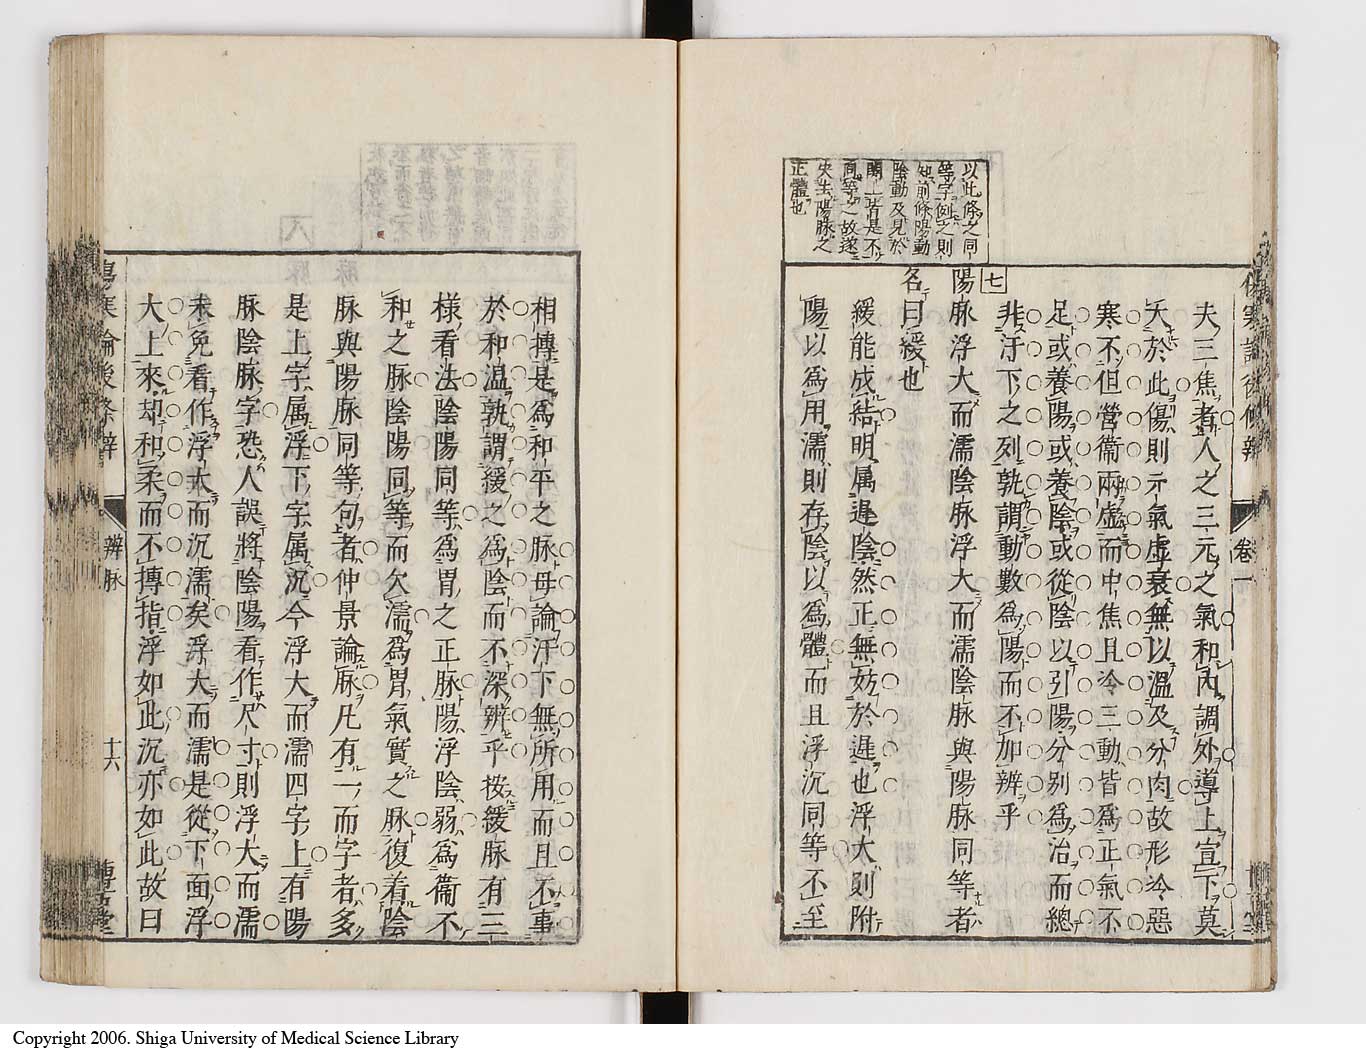 以此條之同
等字例之則
知前條陽動
陰動及見於
關上皆是不
同等之故遂
失生陽脉之
正體也
夫三焦者人之三元之氣和內調外導上宣下莫
大於此傷則元氣虛衰無以溫及分肉故形冷惡
寒不但營衛兩虛而中焦且冷三動皆爲正氣不
足或養陽或養陰或從陰以引陽分別爲治而總
非汗下之列孰謂動數爲陽而不加辨乎
七
陽脉浮大而濡陰脉浮大而濡陰脉與陽脉同等者
名曰緩也
緩能成結明属遲陰然正無妨於遲也浮大則附
陽以爲用濡則存陰以爲體而且浮沉同等不至
傷寒論後條辨
卷一
相摶是爲和平之脉母論汗下無所用而且不事
於和温孰謂緩之爲陰而不深辨乎按緩脉有三
様看法陰陽同等爲胃之正脉陽浮陰弱爲衞不
和之脉陰陽同等而欠濡爲胃氣實之脉復着陰
脉與陽脉同等句者仲景論脉凡有一而字者多
是上字属浮下字属沉今浮大而濡四字上有陽
脉陰脉字恐人誤將陰陽看作尺寸則浮大而濡
未免看作浮大而沉濡矣浮大而濡是從下面浮
大上來却和柔而不摶指浮如此沉亦如此故曰
傷寒論後條辨
辨脉
十六
博古堂
Copyright 2006. Shiga University of Medical Science Library